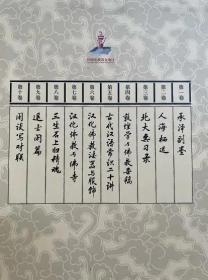 第一卷
承泽副墨
第二卷
人海栖迟
第三卷
北大熏习录
第四卷
敦煌学与佛教杂稿
第五卷
古代汉语常识二十讲
第六卷
汉化佛教法器与服饰
第七卷
汉化佛教与佛寺
第八卷
三生石上旧精魂
第九卷
退士闲篇
第十卷
闲谈写对联